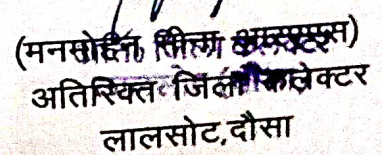 (मनमोहन मीना आरएएस)
अतिरिक्त जिला कलेक्टर
लालसोट,दौसा